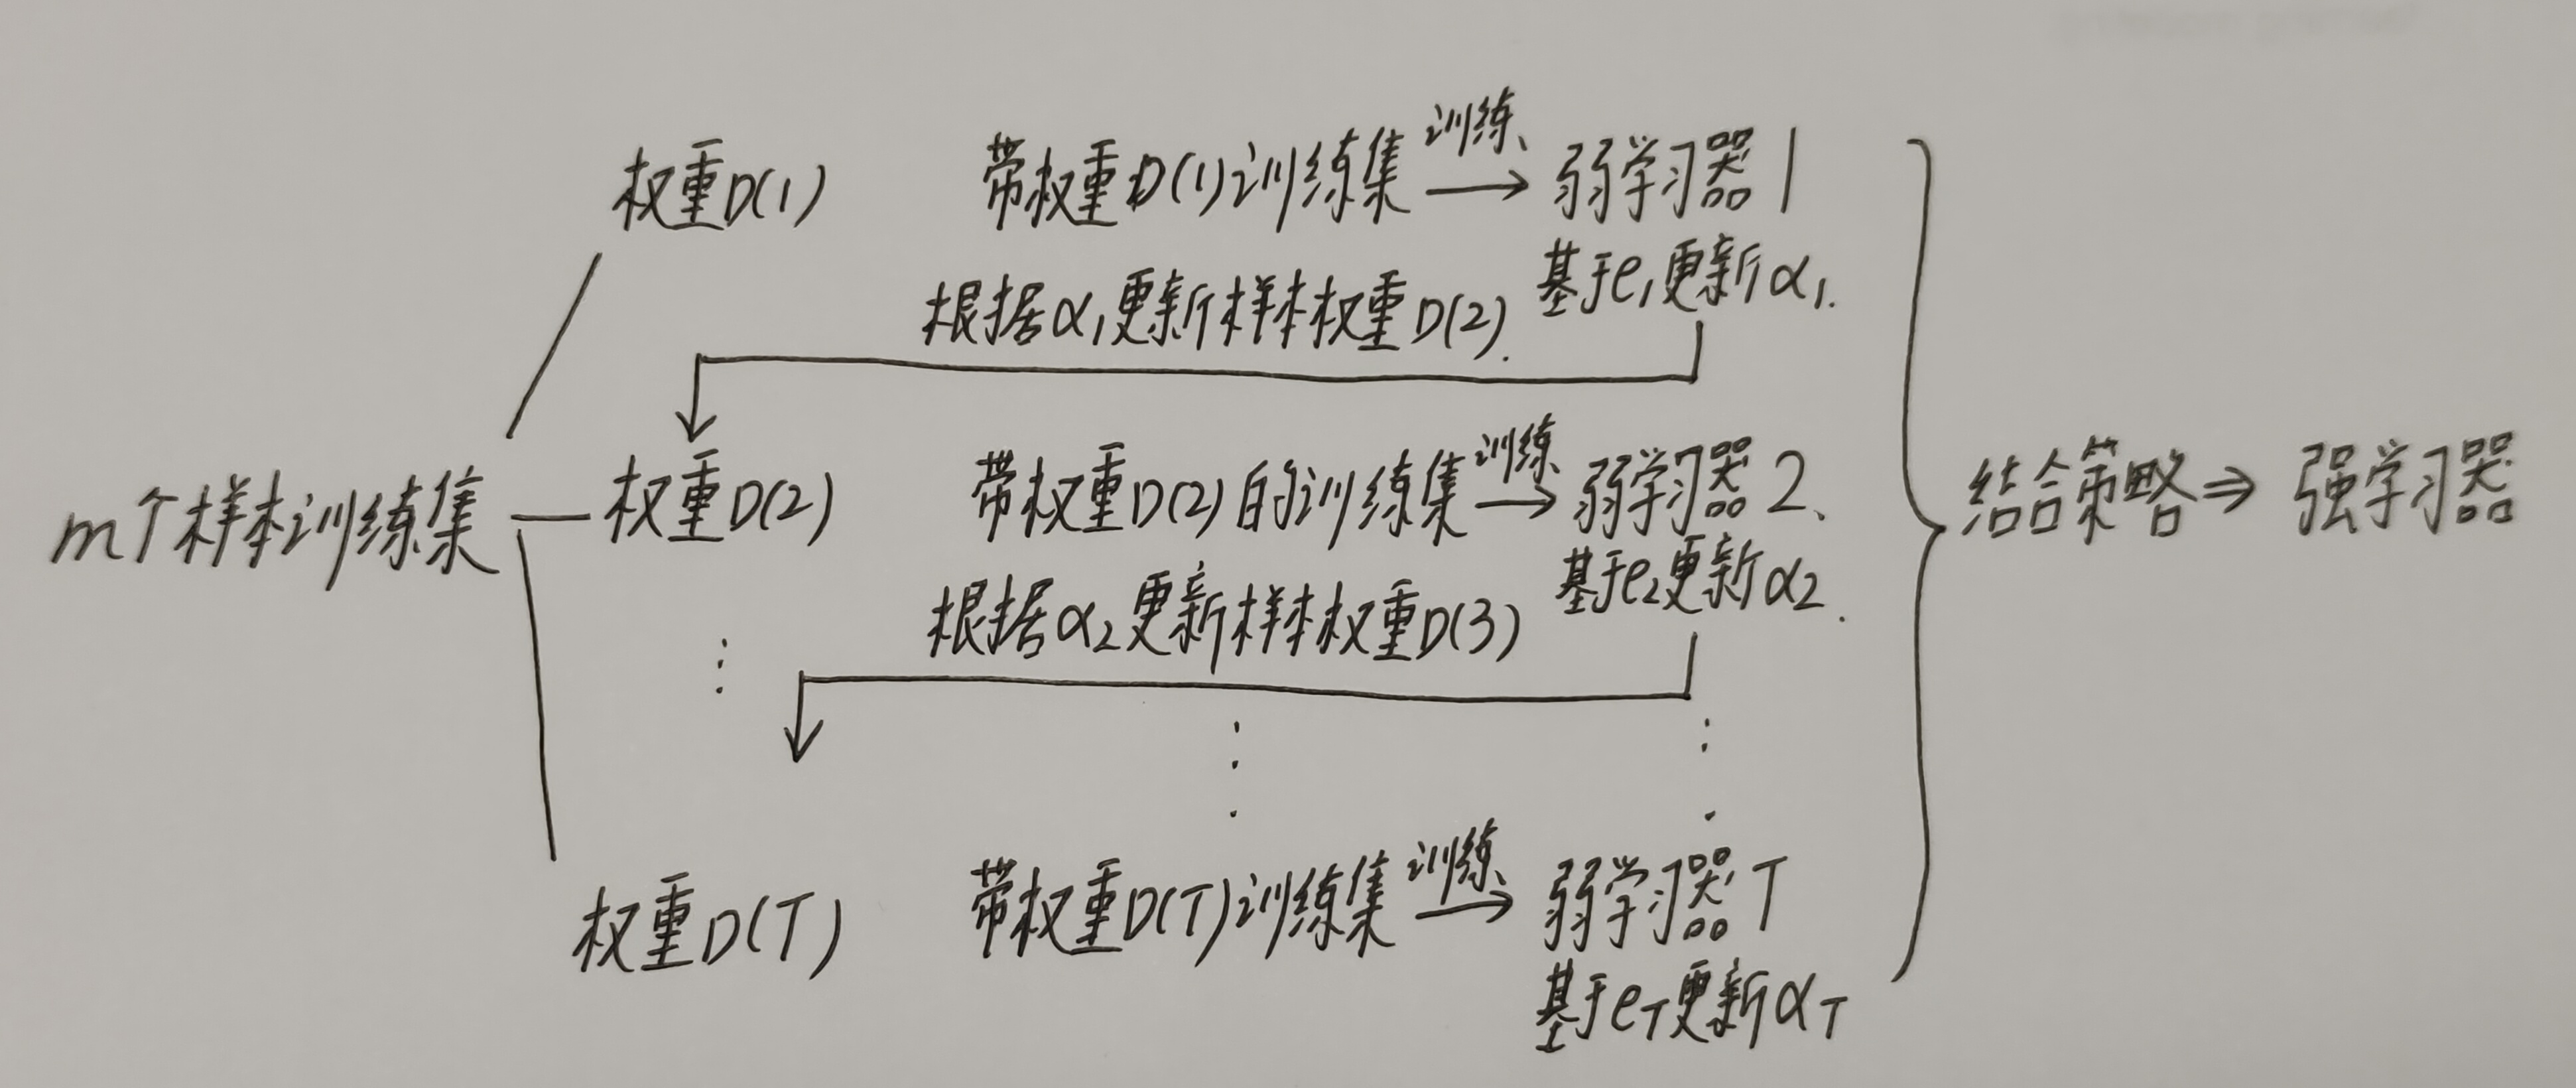 权重D(1)
带权重D(1)训练集 训练 → 弱学习器1
基于e₁更新α₁.
根据α₁更新样本权重D(2).
m个样本训练集
权重D(2)
带权重D(2)的训练集 训练 → 弱学习器2、
基于e₂更新α₂.
根据α₂更新样本权重D(3)
权重D(T)
带权重D(T)训练集 训练 → 弱学习器T
基于e_T更新α_T
结合策略⇒强学习器